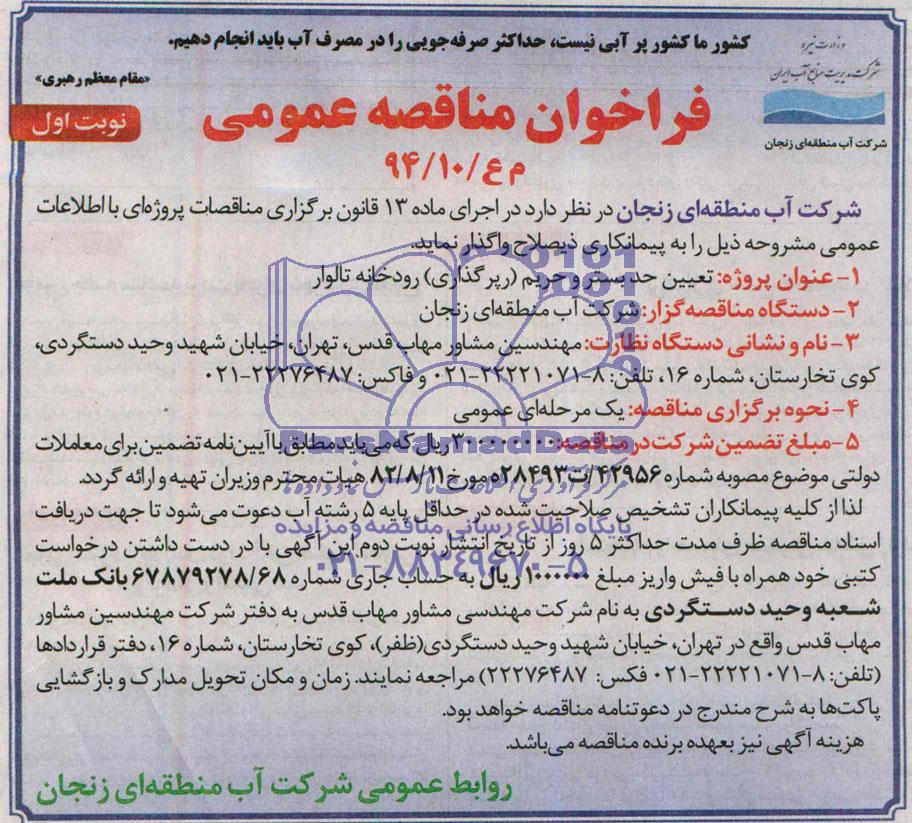 کشور ما کشور پر آبی نیست، حداکثر صرفه‌جویی را در مصرف آب باید انجام دهیم.
«مقام معظم رهبری»
وزارت نیرو
شرکت مدیریت منابع آب ایران
شرکت آب منطقه‌ای زنجان
نوبت اول
فراخوان مناقصه عمومی
م ع/۹۴/۱۰
شرکت آب منطقه‌ای زنجان در نظر دارد در اجرای ماده ۱۳ قانون برگزاری مناقصات پروژه‌ای با اطلاعات
عمومی مشروحه ذیل را به پیمانکاری ذیصلاح واگذار نماید.
۱- عنوان پروژه: تعیین حد بستر و حریم (رپرگذاری) رودخانه تالوار
۲- دستگاه مناقصه گزار: شرکت آب منطقه‌ای زنجان
۳- نام و نشانی دستگاه نظارت: مهندسین مشاور مهاب قدس، تهران، خیابان شهید وحید دستگردی،
کوی تخارستان، شماره ۱۶، تلفن: ۸-۲۲۲۲۱۰۷۱-۰۲۱ و فاکس: ۲۲۲۷۶۴۸۷-۰۲۱
۴- نحوه برگزاری مناقصه: یک مرحله‌ای عمومی
۵- مبلغ تضمین شرکت در مناقصه: ریال که می‌باید مطابق با آیین نامه تضمین برای معاملات
دولتی موضوع مصوبه شماره ۴۲۹۵۶/ت۲۸۴۹۳ه مورخ ۸۲/۸/۱۱ هیات محترم وزیران تهیه و ارائه گردد.
لذا از کلیه پیمانکاران تشخیص صلاحیت شده در حداقل پایه ۵ رشته آب دعوت می‌شود تا جهت دریافت
اسناد مناقصه ظرف مدت حداکثر ۵ روز از تاریخ انتشار نوبت دوم این آگهی با در دست داشتن درخواست
کتبی خود همراه با فیش واریز مبلغ ۱۰۰۰۰۰۰ ریال به حساب جاری شماره ۶۷۸۷۹۲۷۸/۶۸ بانک ملت
شعبه وحید دستگردی به نام شرکت مهندسی مشاور مهاب قدس به دفتر شرکت مهندسین مشاور
مهاب قدس واقع در تهران، خیابان شهید وحید دستگردی(ظفر)، کوی تخارستان، شماره ۱۶، دفتر قراردادها
(تلفن: ۸-۲۲۲۲۱۰۷۱-۰۲۱ فکس: ۲۲۲۷۶۴۸۷) مراجعه نمایند. زمان و مکان تحویل مدارک و بازگشایی
پاکت‌ها به شرح مندرج در دعوتنامه مناقصه خواهد بود.
هزینه آگهی نیز بعهده برنده مناقصه می‌باشد.
روابط عمومی شرکت آب منطقه‌ای زنجان
پایگاه اطلاع رسانی مناقصه و مزایده
۰۲۱-۸۸۳۴۹۶۷۰-۵